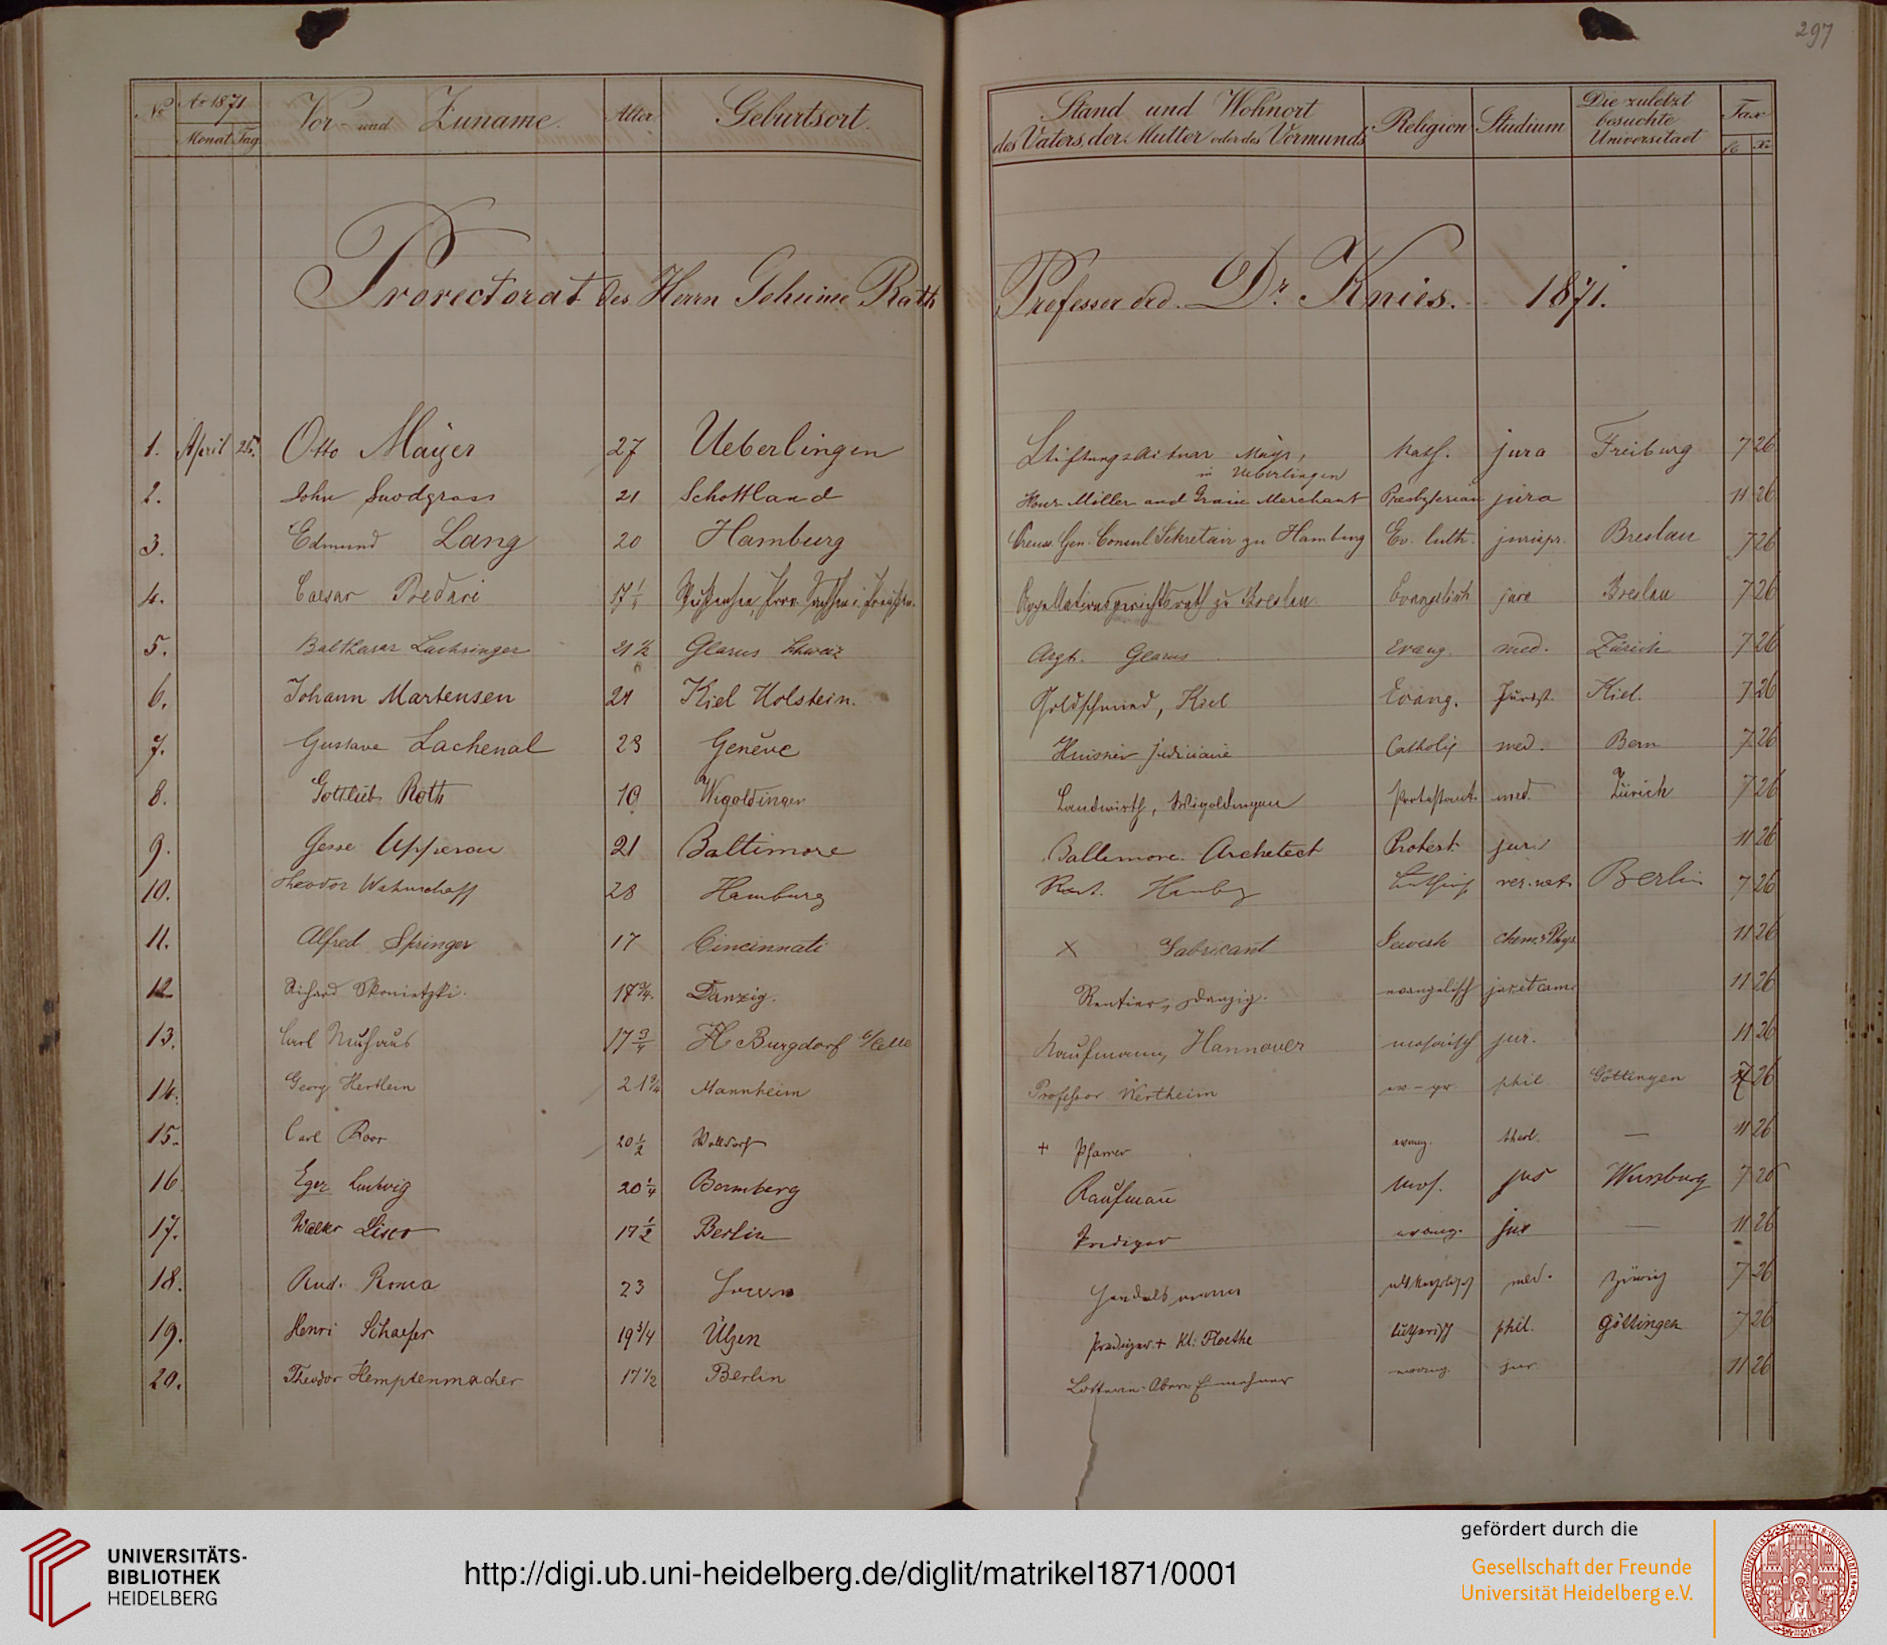 297
No Ao 1871 Vor- und Zuname. Alter Geburtsort. Stand und Wohnort des Vaters, der Mutter oder des Vormunds Religion Studium Die zuletzt besuchte Universitaet Tax
Monat Tag fl Xr
Prorectorat des Herrn Geheime Rath Professor ord. Dr. Knies. 1871.
1. April 25. Otto Mayer 27 Ueberlingen in Ueberlingen Kath. jura Freiburg 7 26
2. John Snodgrass 21 Schottland Miller and Grain Merchant Presbyterian jura 11 26
3. Edmund Lang 20 Hamburg Preuss. Gen. Consul Sekretair zu Hamburg Ev. luth. jurispr. Breslau 7 26
4. Caesar Appellationsgerichtsrath zu Breslau Evangelisch jura Breslau 7 26
5. Balthasar 21 1/2 Glarus Schweiz Glarus Evang. med. Zürich 7 26
6. Johann Martensen 21 Kiel Holstein. Goldschmied, Kiel Evang. Kiel. 7 26
7. Gustave Lachenal 23 Genève Huissier judiciaire Catholiq med. Bern 7 26
8. Gottlieb Roth 19 Wigoldingen Landwirth, Wigoldingen Protestant. med. Zürich 7 26
9. Jesse 21 Baltimore Baltimore. Archetect Protest. jur. 11 26
10. Theodor Wahnschaff 28 Hamburg Hamburg rer. nat. Berlin 7 26
11. Alfred Springer 17 Cincinnati X Fabricant chem. & Phys. 11 26
12. Richard 17 3/4. Danzig. Rentier, Danzig. evangelisch jur. et cam. 11 26
13. Carl 17 3/4 Burgdorf Kaufmann, Hannover mosaisch jur. 11 26
14. Georg 21 3/4 Mannheim Professor phil Göttingen 7 26
15. Carl Roos 20 1/2 + Pfarrer evang. theol. — 11 26
16. Eger Ludwig 20 1/4 Bamberg Kaufmann Mos. jus Würzburg 7 26
17. Walter Lisco 17 1/2 Berlin Prediger evang. jus — 11 26
18. Rud. 23 Handelsmann med. Zürich 7 26
19. Henri Schaefer 19 3/4 Ülzen Prediger + Kl: Floethe lutherisch phil. Göttingen 7 26
20. Theodor Hemptenmacher 17 1/2 Berlin Lotterie-Ober-Einnehmer evang. jur 11 26
UNIVERSITÄTS-
BIBLIOTHEK
HEIDELBERG
http://digi.ub.uni-heidelberg.de/diglit/matrikel1871/0001
gefördert durch die
Gesellschaft der Freunde
Universität Heidelberg e.V.